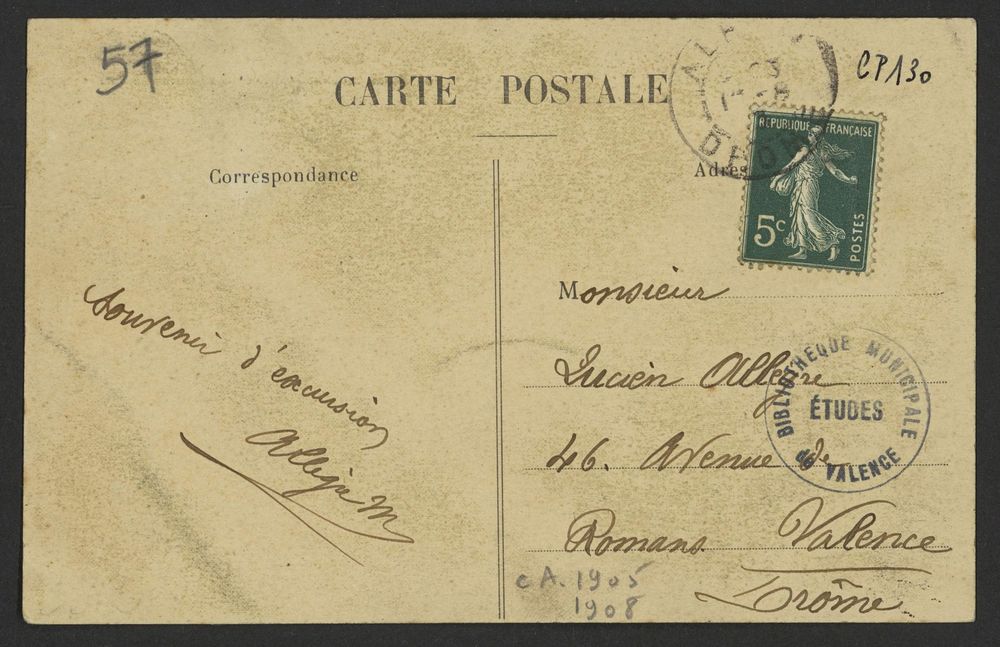 57
CP130
CARTE POSTALE
DRÔME
RÉPUBLIQUE FRANÇAISE
5c
POSTES
Correspondance
Adres
Souvenir d'excursion
Allègre M
Monsieur
Lucien Allègre
46. Avenue de
Romans. Valence
Drôme
BIBLIOTHEQUE MUNICIPALE
ÉTUDES
de VALENCE
CA. 1905
1908